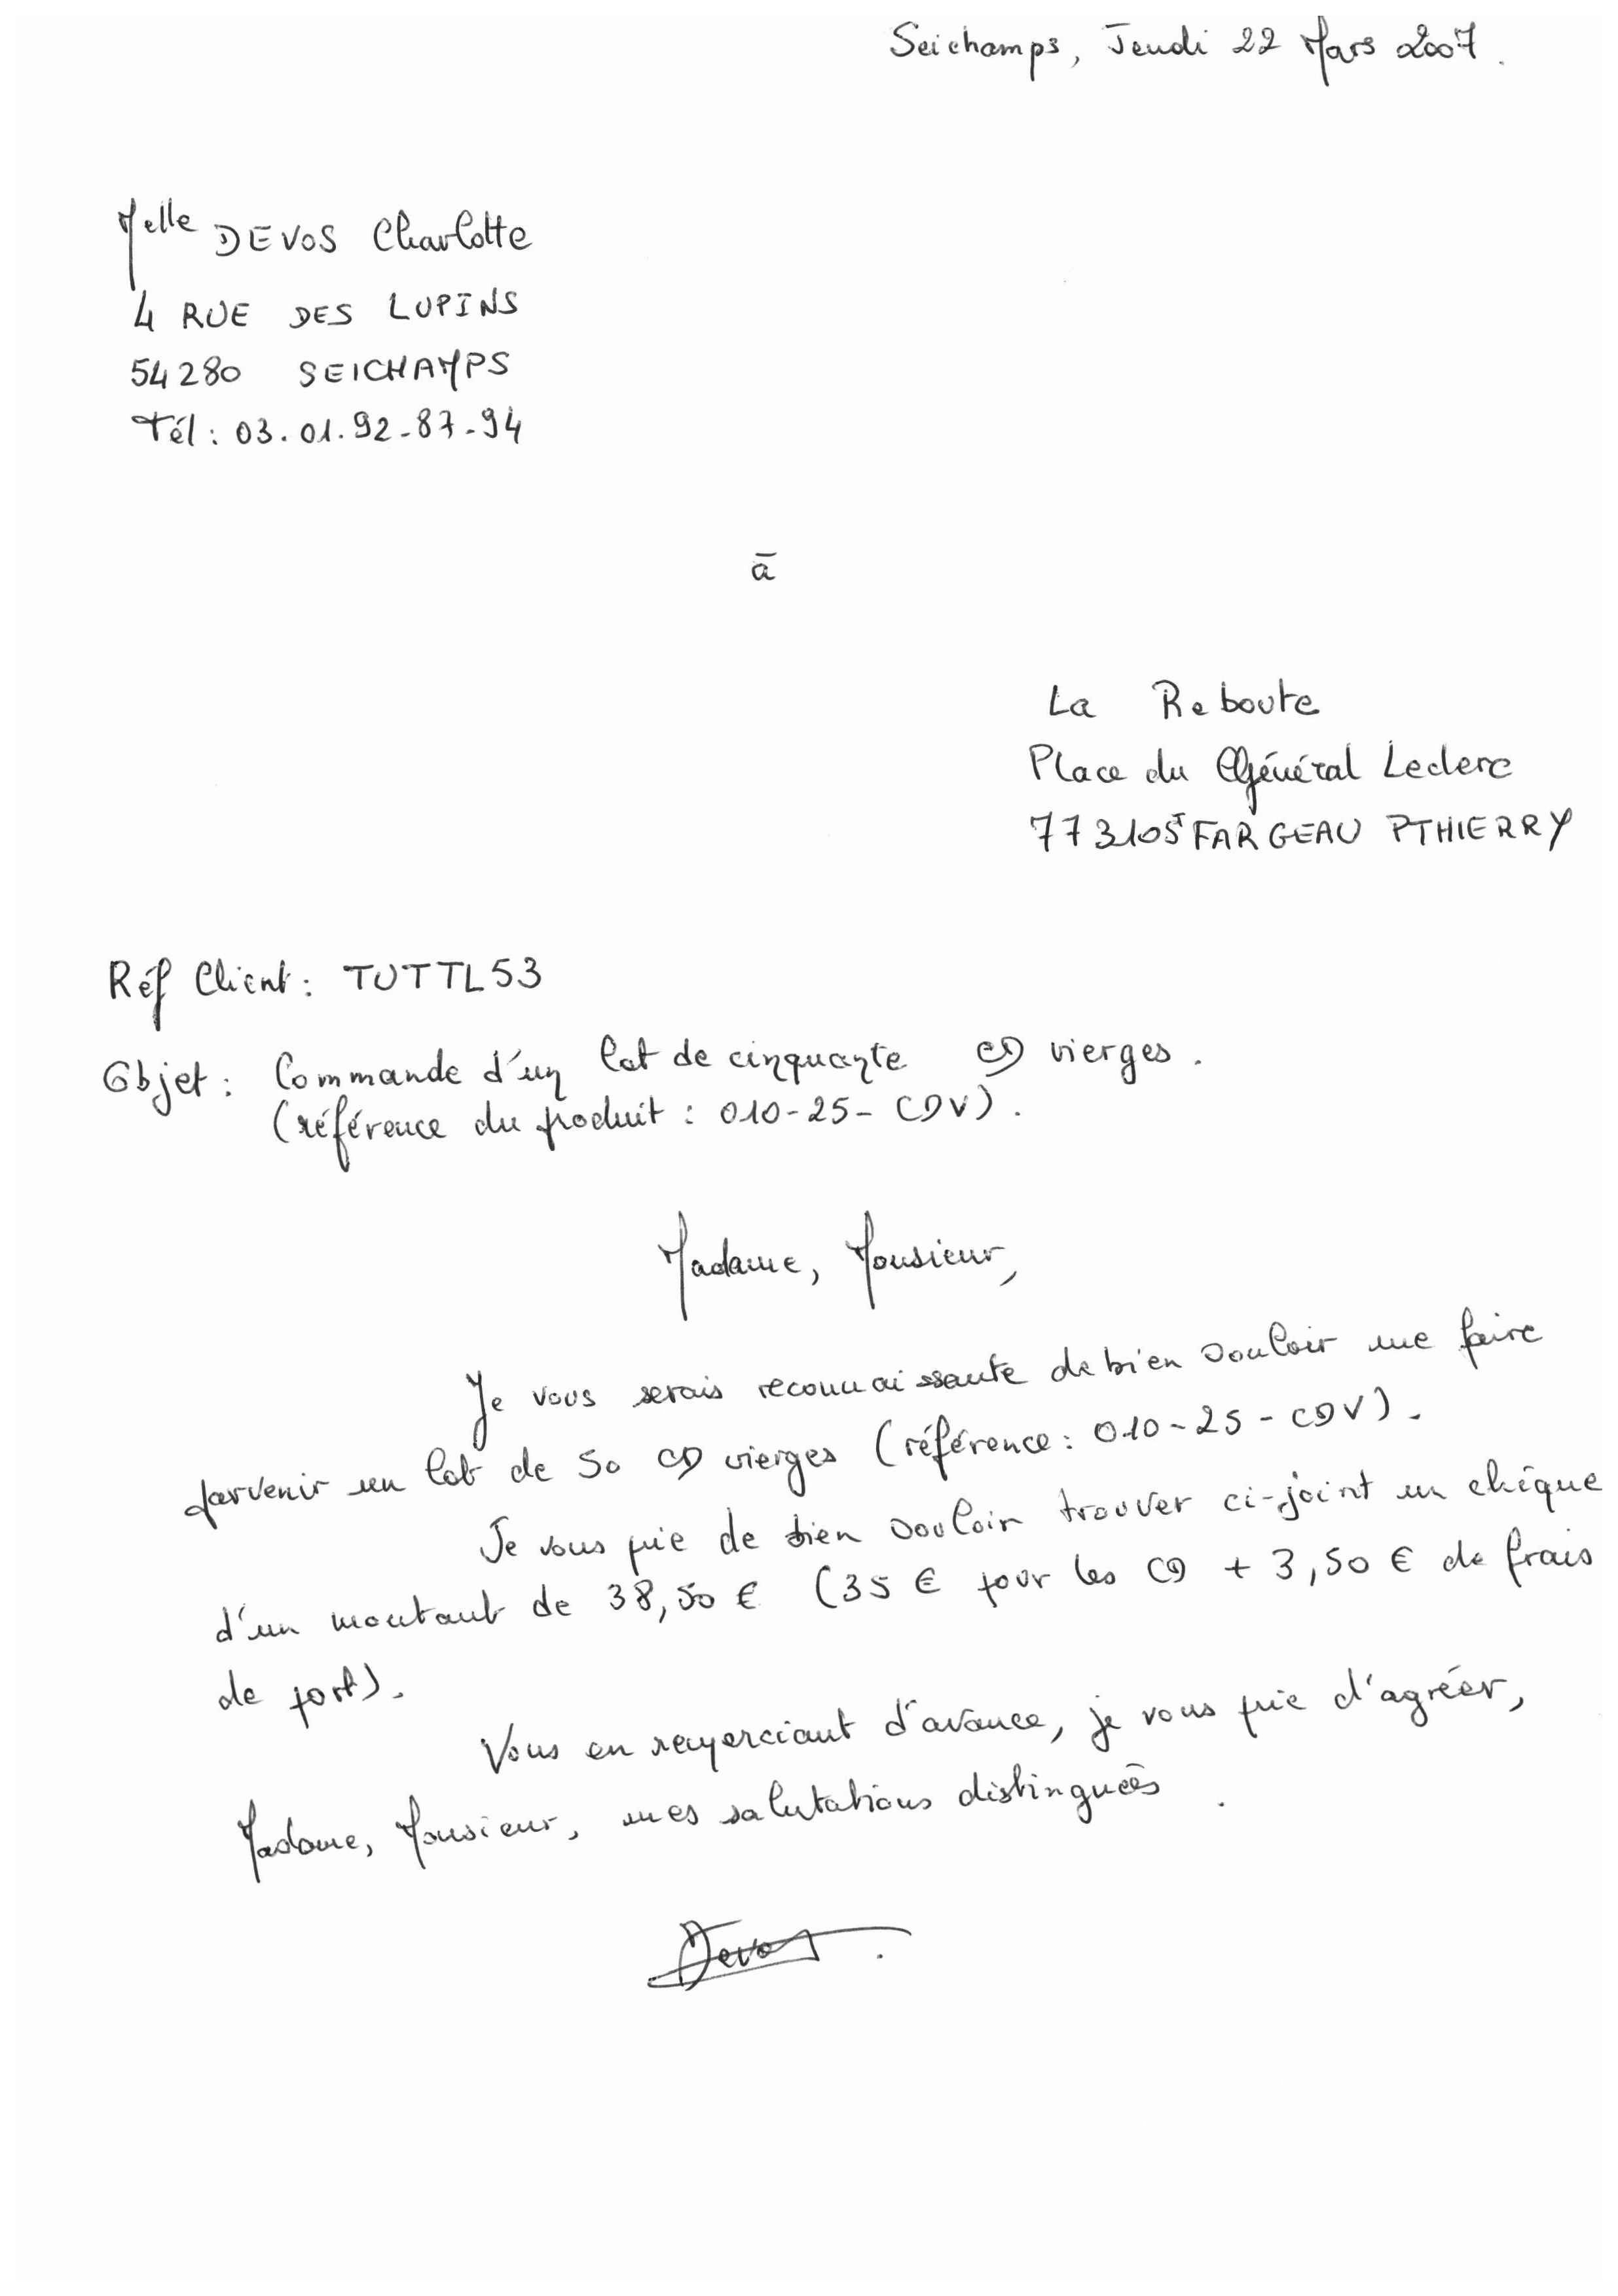 Seichamps, Jeudi 22 Mars 2007.
Melle DEVOS Charlotte
4 RUE DES LUPINS
54280 SEICHAMPS
Tél : 03.01.92-87-94
à
La Reboute
Place du Général Leclerc
77310 ST FARGEAU PTHIERRY
Réf Client : TUTTL53
Objet : Commande d'un lot de cinquante CD vierges.
(référence du produit : 010-25-CDV).
Madame, Monsieur,
Je vous serais reconnaissante de bien vouloir me faire
parvenir un lot de 50 CD vierges (référence : 010-25-CDV).
Je vous prie de bien vouloir trouver ci-joint un chèque
d'un montant de 38,50 € (35 € pour les CD + 3,50 € de frais
de port).
Vous en remerciant d'avance, je vous prie d'agréer,
Madame, Monsieur, mes salutations distinguées.
Devos